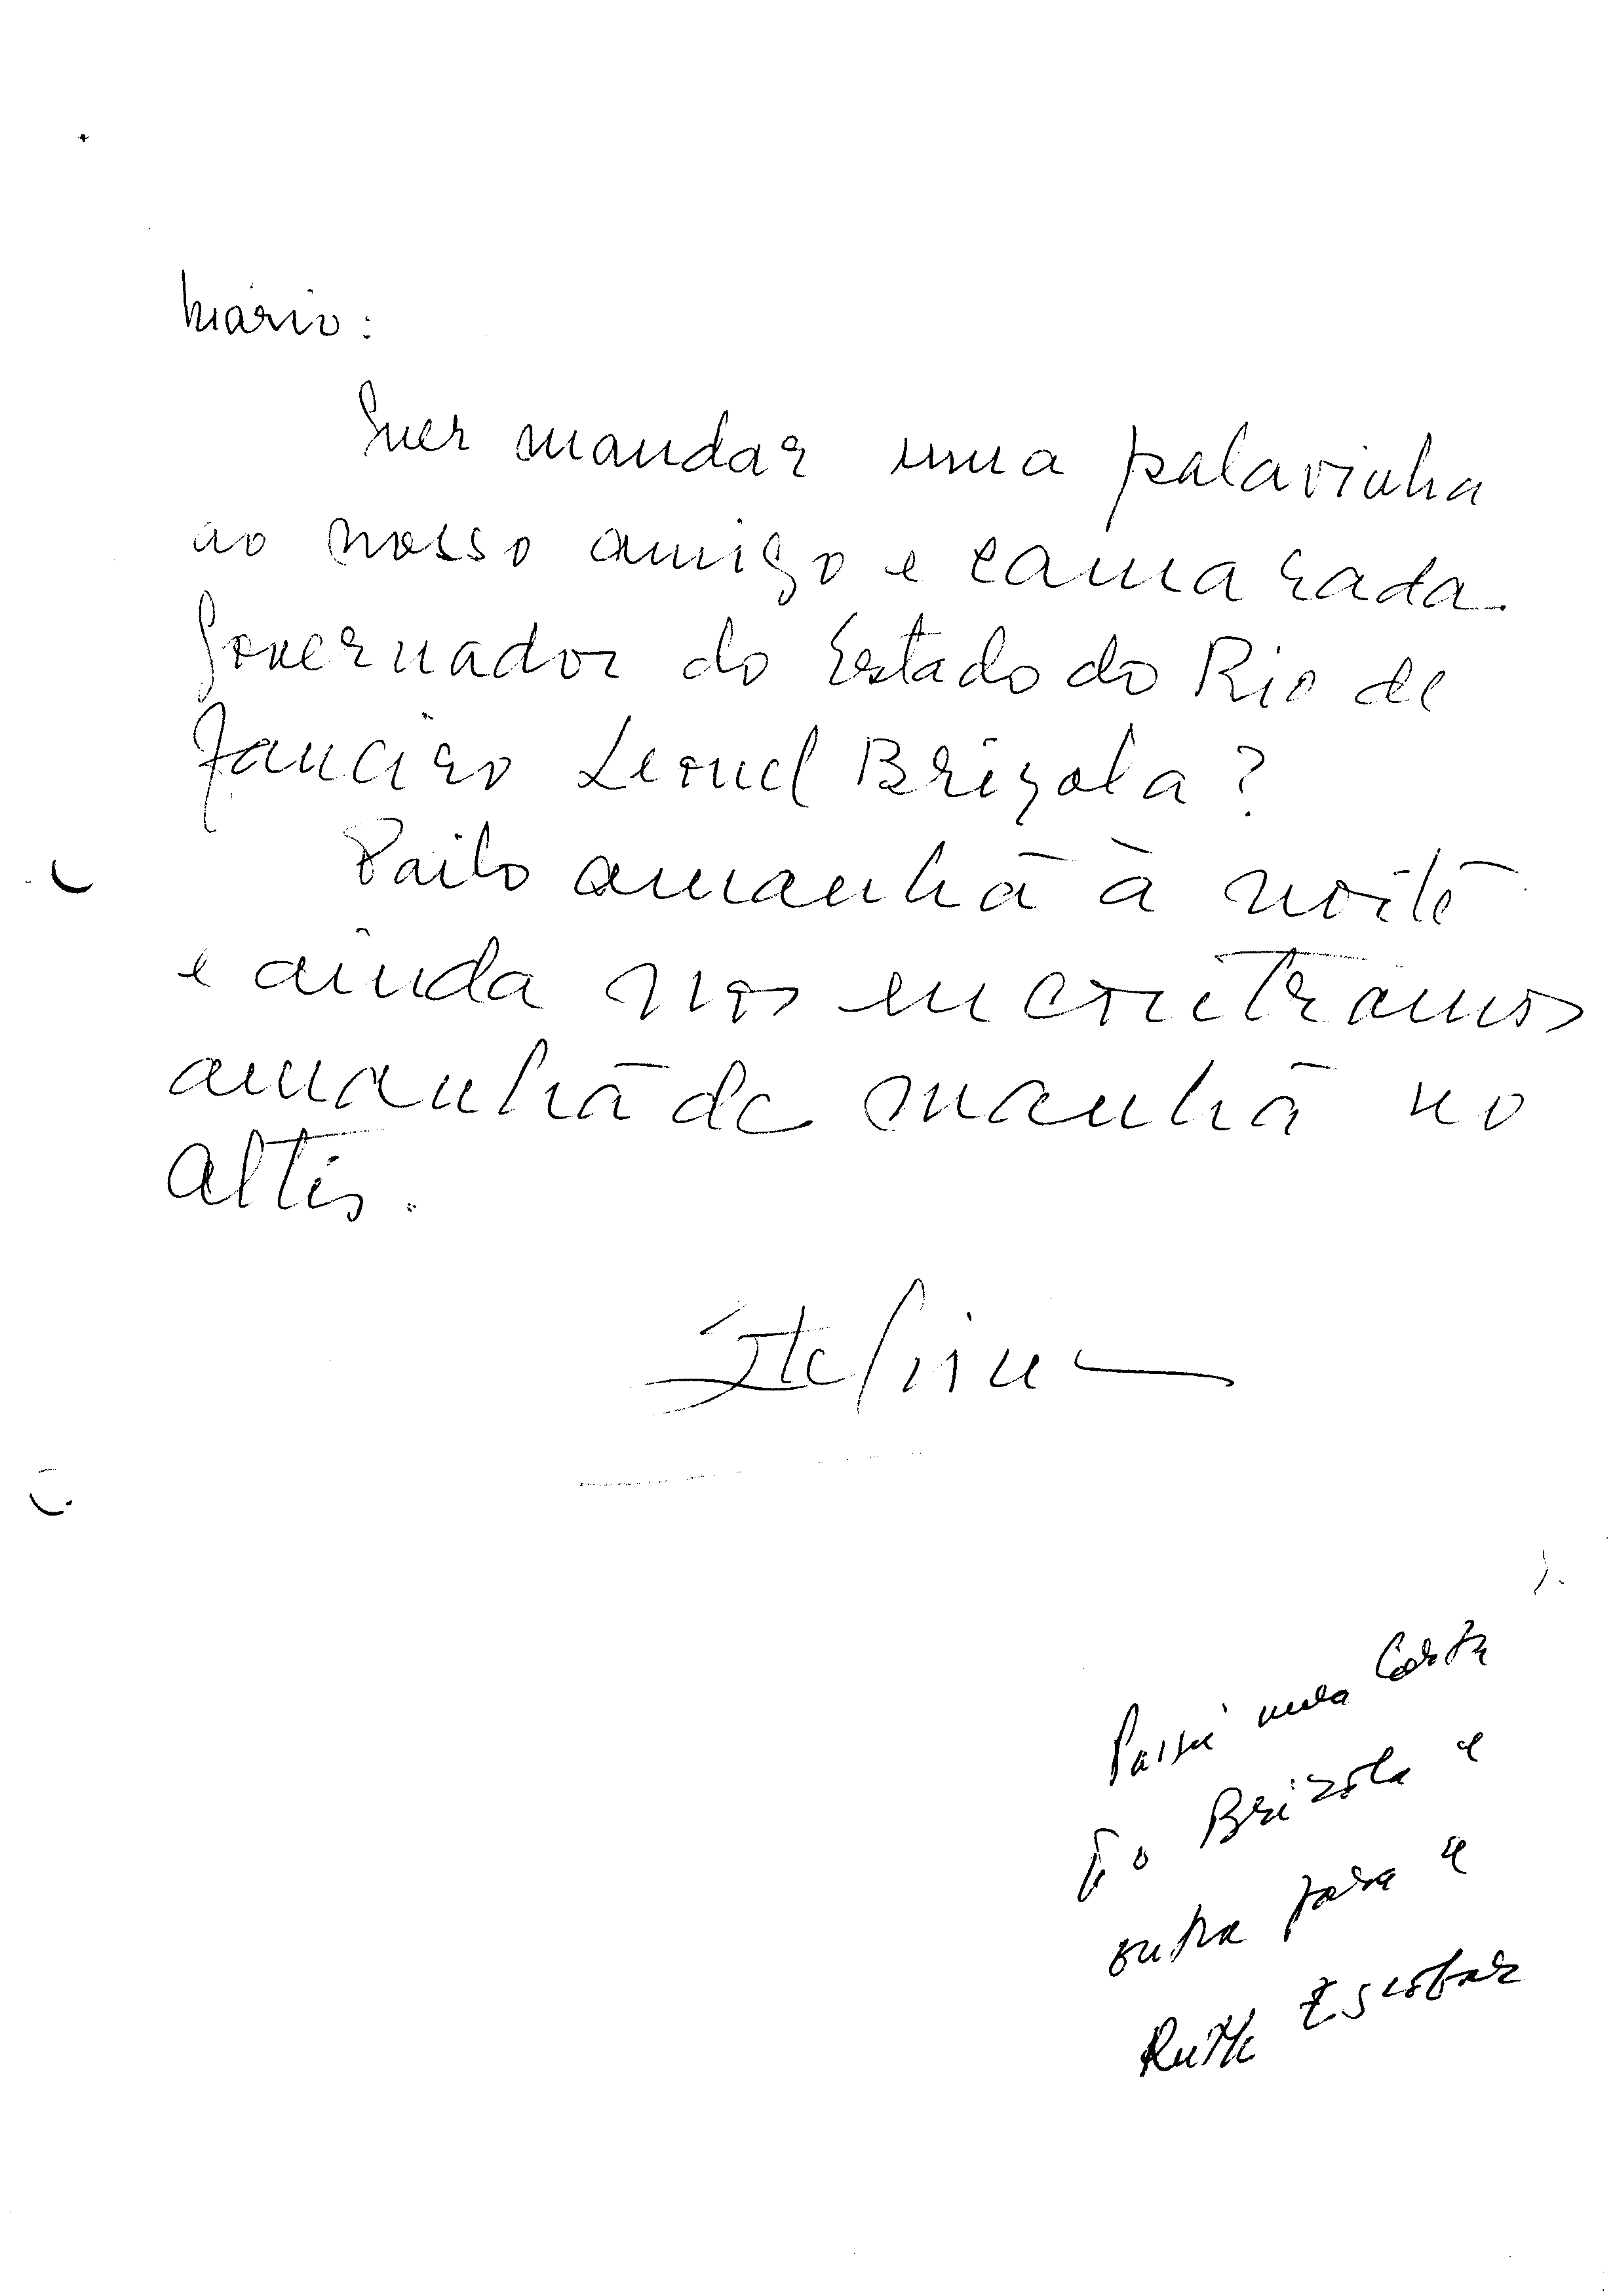 Mário:
Quer mandar uma palavrinha
ao nosso amigo e camarada
Governador do Estado do Rio de
Janeiro Leonel Brizola?
Parto amanhã à noite
e ainda nos encontramos
amanhã de manhã no
Altis.
Estefânia
carta
Brizola e
outra para a
Ruth Escobar